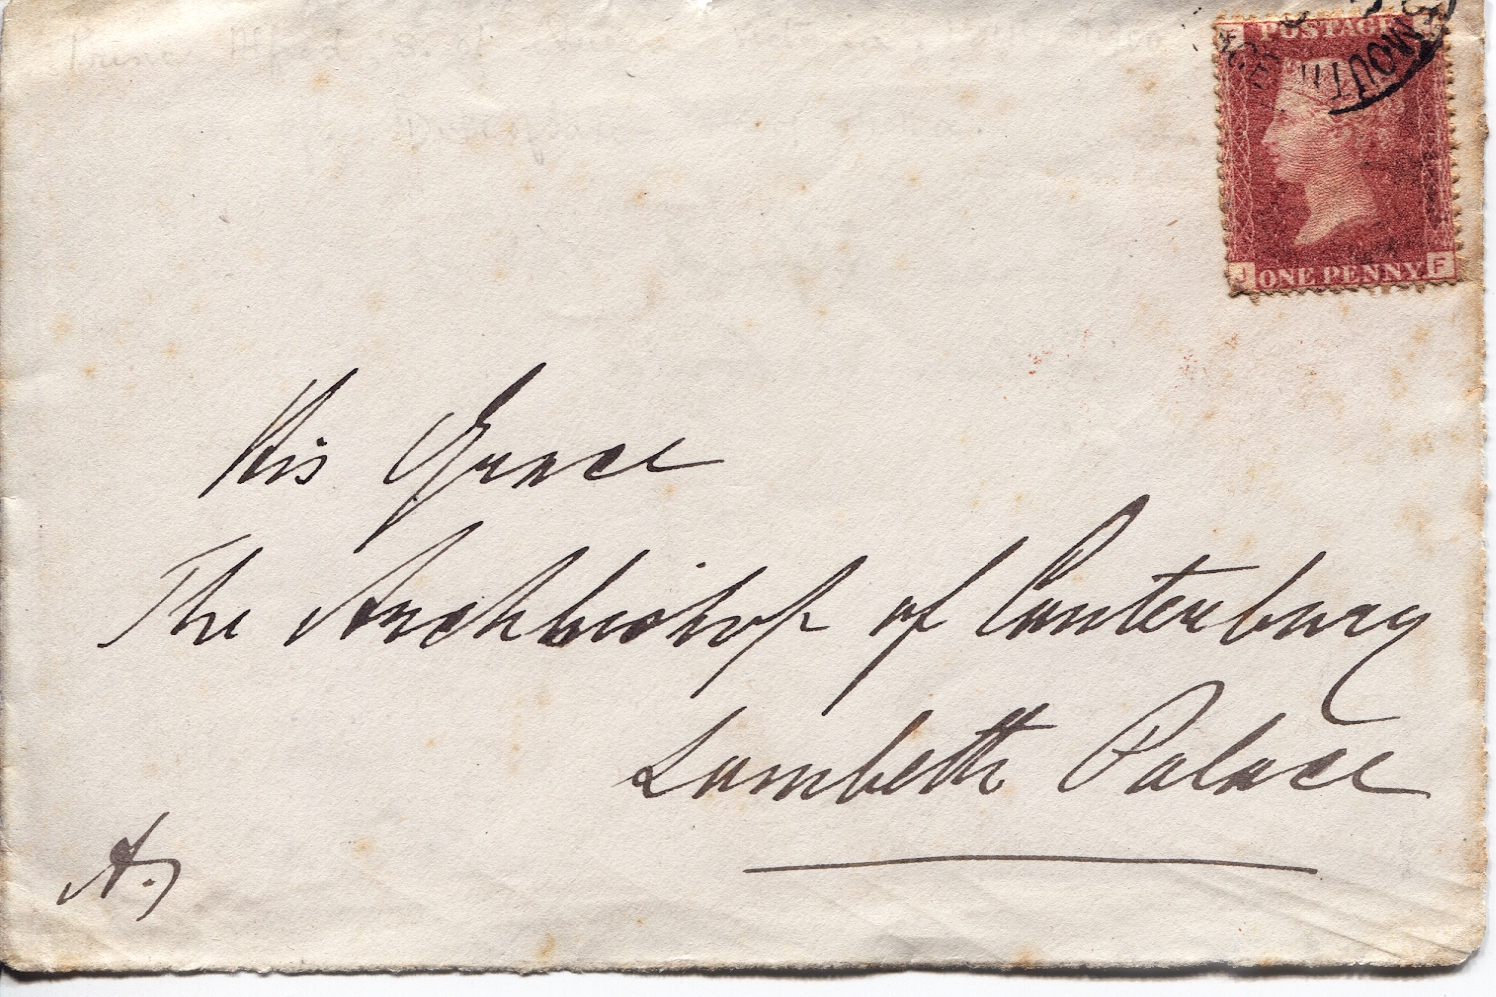 Prince Alfred,
POSTAGE
MOUTH
J ONE PENNY F
His Grace
The Archbishop of Canterbury
Lambeth Palace
A.